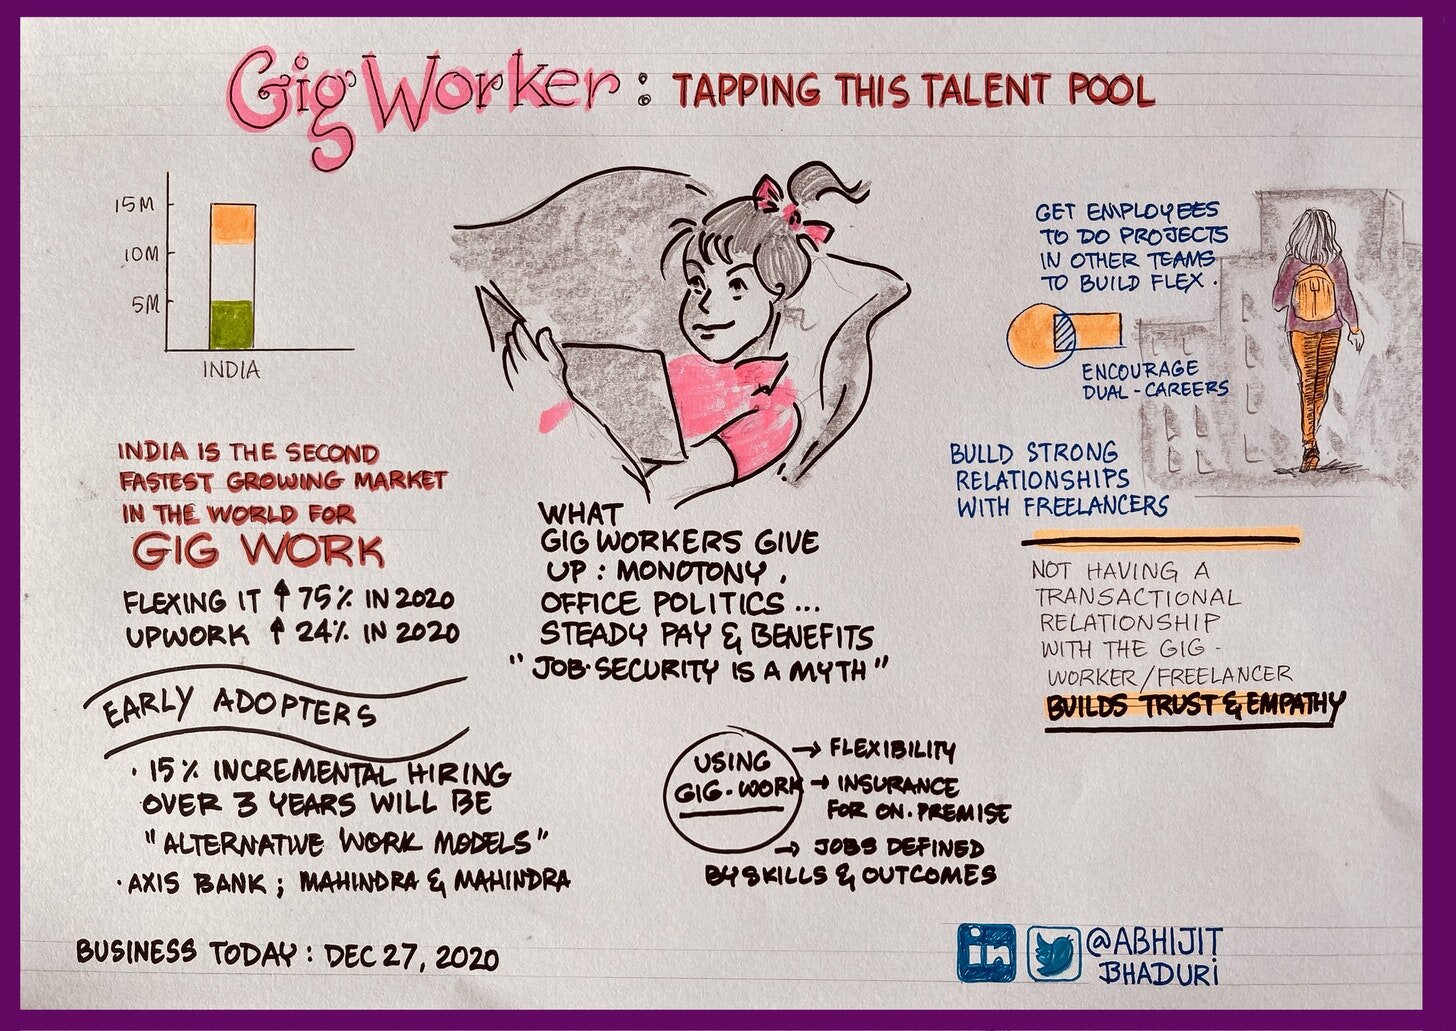 Gig Worker : TAPPING THIS TALENT POOL
15M
10M
5M
INDIA
INDIA IS THE SECOND
FASTEST GROWING MARKET
IN THE WORLD FOR
GIG WORK
FLEXING IT ↑ 75% IN 2020
UPWORK ↑ 24% IN 2020
EARLY ADOPTERS
· 15% INCREMENTAL HIRING
OVER 3 YEARS WILL BE
"ALTERNATIVE WORK MODELS"
· AXIS BANK ; MAHINDRA & MAHINDRA
BUSINESS TODAY : DEC 27, 2020
WHAT
GIG WORKERS GIVE
UP : MONOTONY ,
OFFICE POLITICS ...
STEADY PAY & BENEFITS
"JOB·SECURITY IS A MYTH"
USING
GIG-WORK
→ FLEXIBILITY
→ INSURANCE
FOR ON-PREMISE
→ JOBS DEFINED
BY SKILLS & OUTCOMES
GET EMPLOYEES
TO DO PROJECTS
IN OTHER TEAMS
TO BUILD FLEX .
ENCOURAGE
DUAL-CAREERS
BUILD STRONG
RELATIONSHIPS
WITH FREELANCERS
NOT HAVING A
TRANSACTIONAL
RELATIONSHIP
WITH THE GIG -
WORKER/FREELANCER
BUILDS TRUST & EMPATHY
in
@ABHIJIT
BHADURI